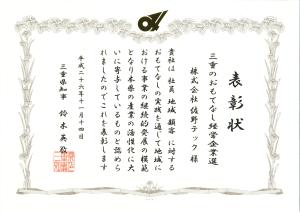 表彰状
三重のおもてなし経営企業選
株式会社佐野テック 様
貴社は 社員 地域 顧客 に対する
おもてなしの実践を通して地域に
おける事業の継続的発展の模範
となり本県の産業の活性化に大
いに寄与しているものと認めら
れましたのでこれを表彰します
平成二十六年十一月十四日
三重県知事 鈴木英敬